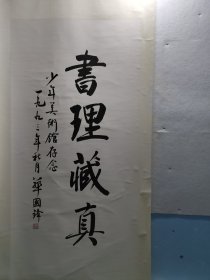 書理藏真
少年美術館存念
一九九二年秋月 單國強